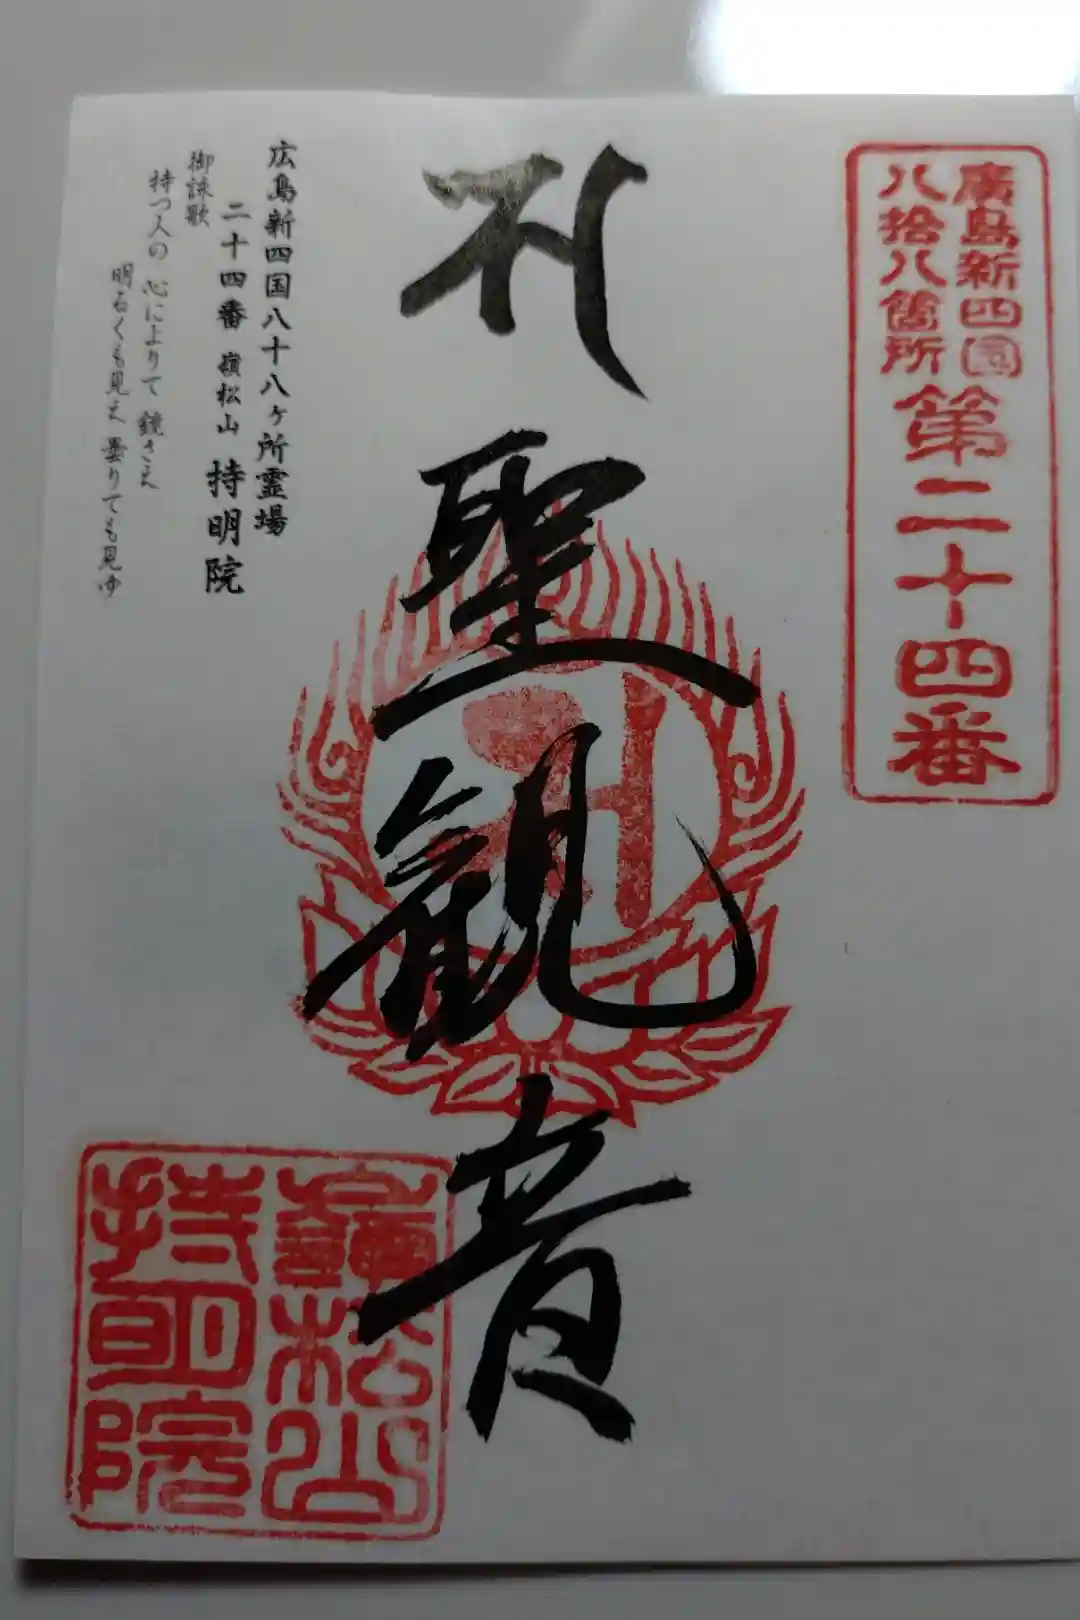 廣島新四國
八拾八箇所
第二十四番
聖観音
広島新四国八十八ヶ所霊場
二十四番 嶺松山 持明院
御詠歌
持つ人の 心によりて 鏡さえ
明るくも見え 曇りても見ゆ
嶺松山
持明院